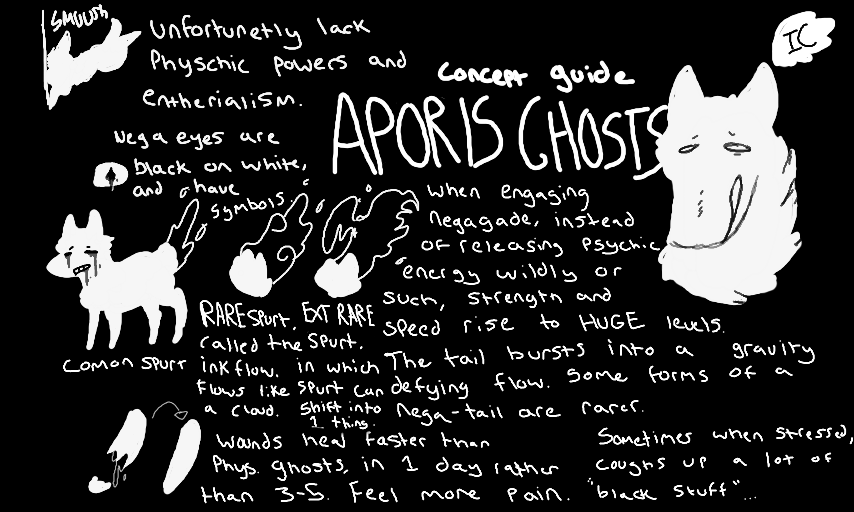 SMUUSH
unfortunetly lack
Physchic powers and
entherialism.
IC
concept guide
APORIS GHOSTS
Nega eyes are
black on white,
and have
symbols
when engaging
negagade, instead
of releasing psychic
energy wildly or
such, strength and
speed rise to HUGE levels.
The tail bursts into a gravity
defying flow. Some forms of a
nega-tail are rarer.
comon spurt
RARE spurt,
called the
inkflow. in which
flows like
a cloud.
EXT RARE
SPURT.
spurt can
shift into
1 thing.
wounds heal faster than
Phys. ghosts, in 1 day rather
than 3-5. Feel more pain.
Sometimes when stressed,
coughs up a lot of
"black stuff"...